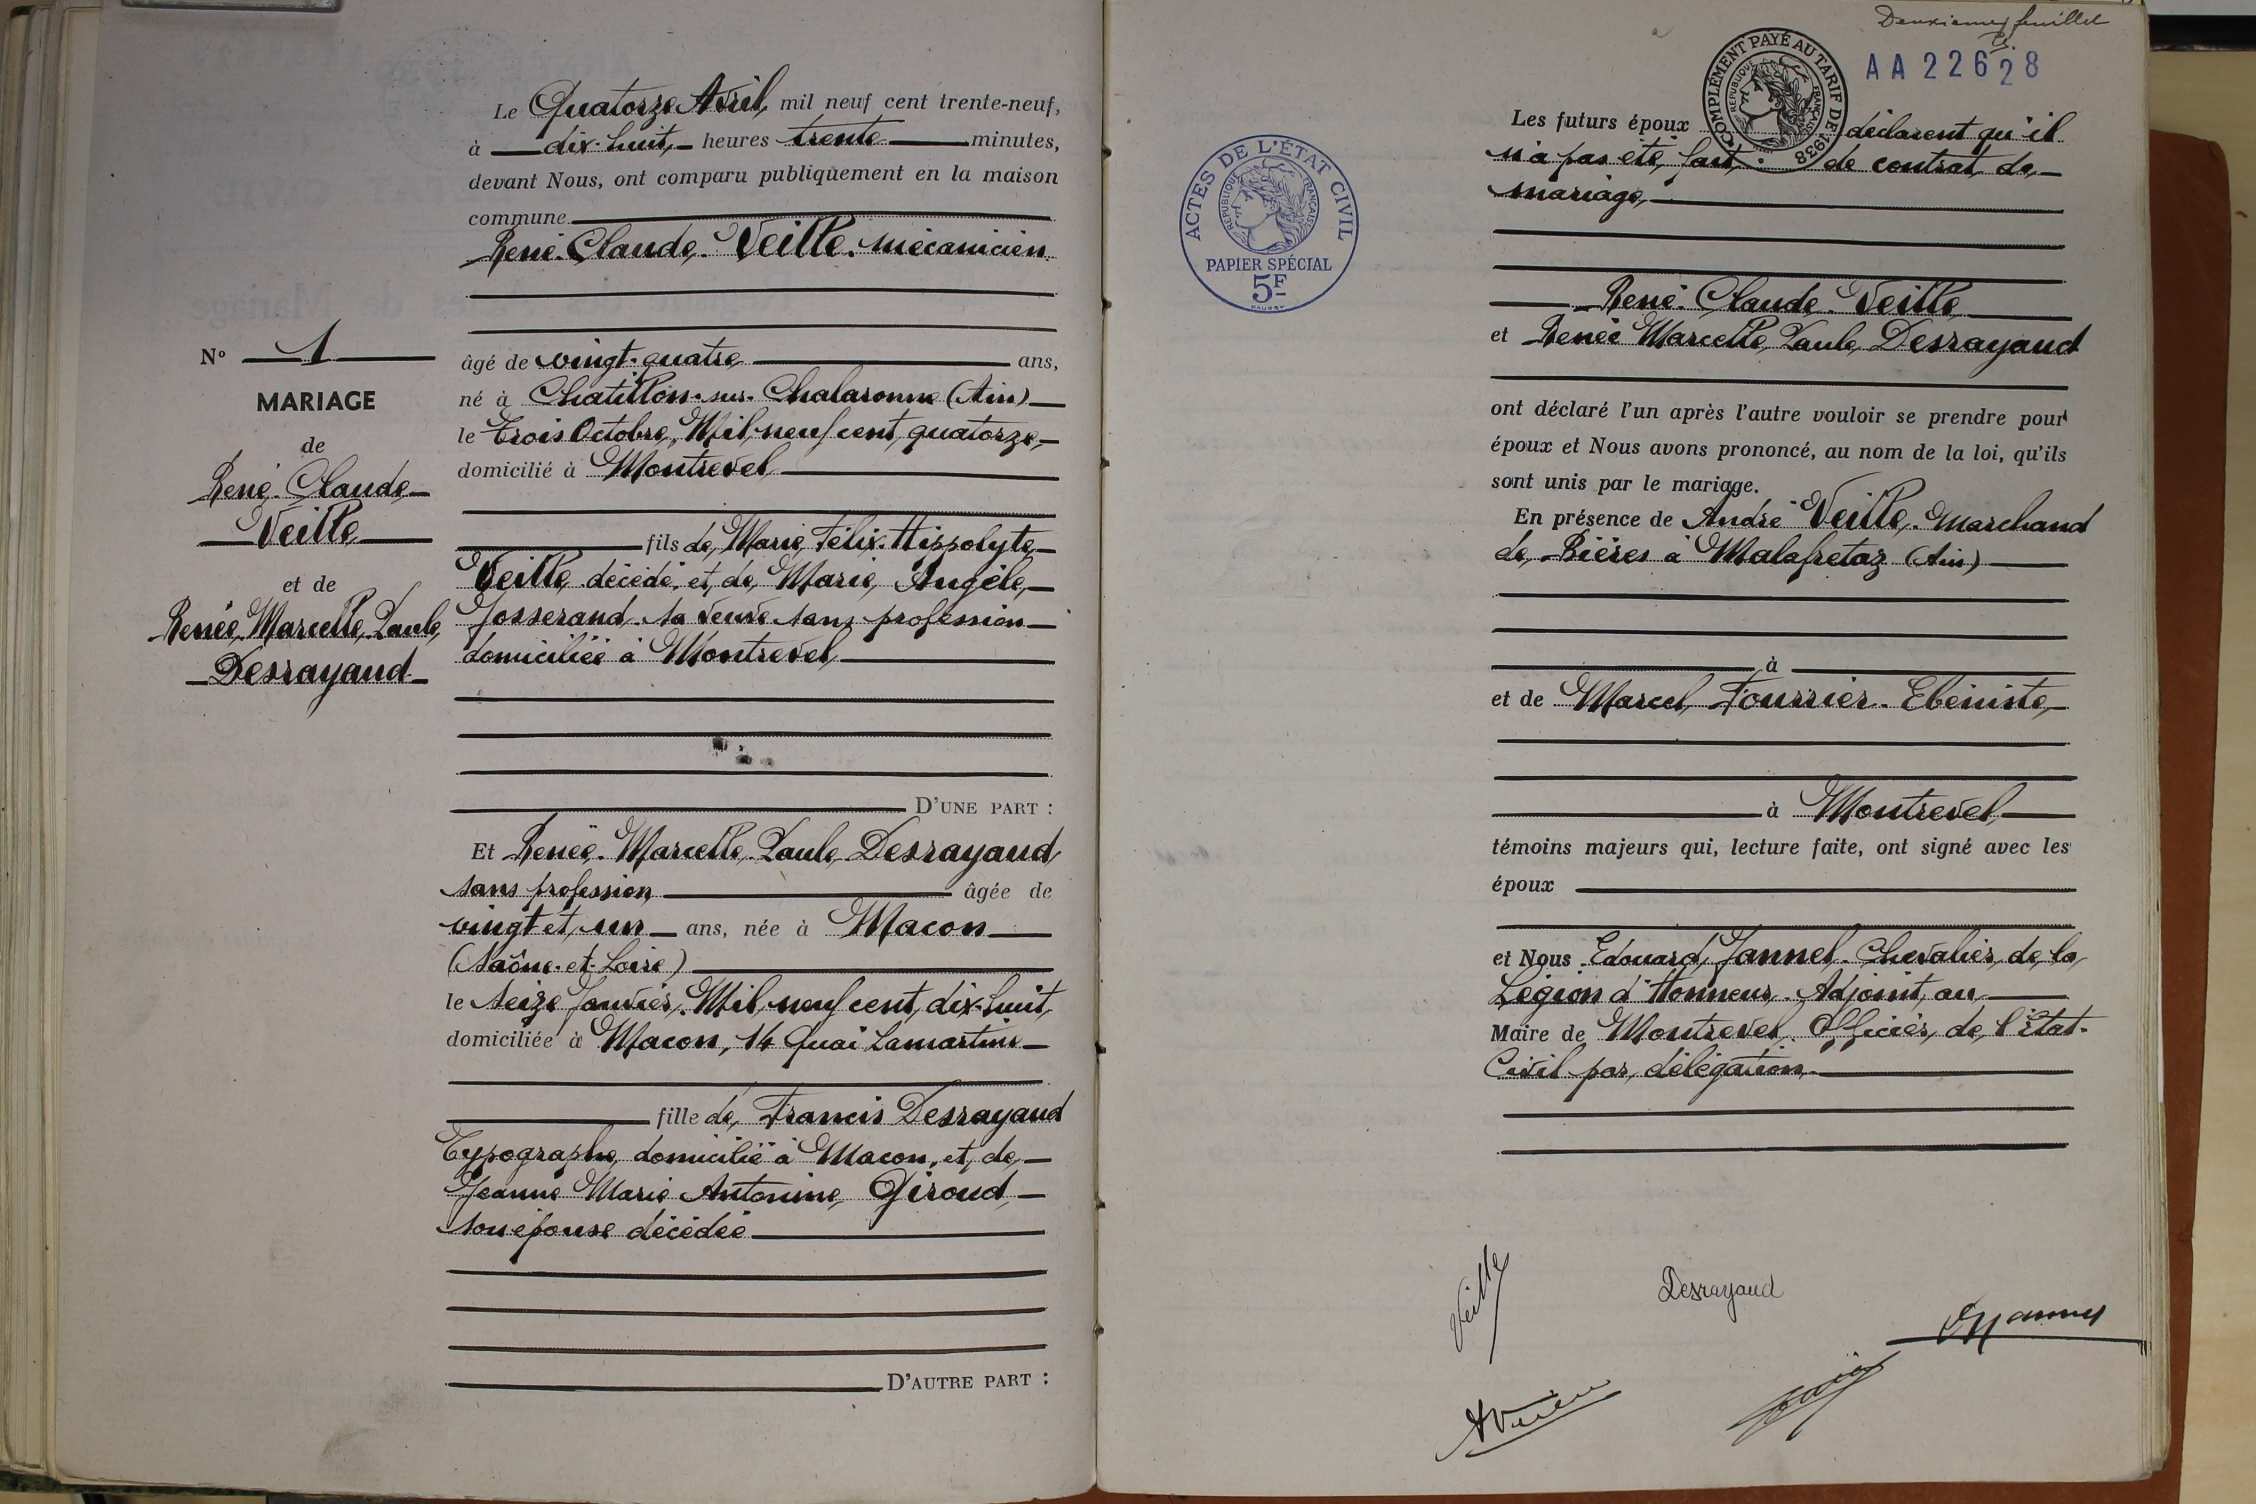 Le Quatorze Avril, mil neuf cent trente-neuf,
à dix-huit, heures trente minutes,
devant Nous, ont comparu publiquement en la maison
commune
René Claude Veille. mécanicien
âgé de vingt-quatre ans,
né à Chatillon-sur-Chalaronne (Ain)
le trois Octobre, Mil neuf cent quatorze,
domicilié à Montrevel
fils de, Marie Félix Hippolyte
Veille décédé, et de Marie Angèle
Josserand sa veuve sans profession
domiciliée à Montrevel
D'UNE PART :
Et Renée Marcelle Paule Desrayaud
sans profession âgée de
vingt et un ans, née à Macon
(Saône-et-Loire)
le seize Janvier, Mil neuf cent dix-huit,
domiciliée à Macon, 14 Quai Lamartine
fille de, Francis Desrayaud
Typographe, domicilié à Macon, et de
Jeanne Marie Antonine Giroud
son épouse décédée
D'AUTRE PART :
N° 1
MARIAGE
de
René Claude
Veille
et de
Renée Marcelle Paule
Desrayaud
Deuxième feuillet
AA 22628
COMPLÉMENT PAYÉ AU TARIF DE 1938
RÉPUBLIQUE FRANÇAISE
ACTES DE L'ÉTAT CIVIL
RÉPUBLIQUE FRANÇAISE
PAPIER SPÉCIAL
5F
Les futurs époux déclarent qu'il
n'a pas été fait de contrat de
mariage
René Claude Veille
et Renée Marcelle Paule Desrayaud
ont déclaré l'un après l'autre vouloir se prendre pour
époux et Nous avons prononcé, au nom de la loi, qu'ils
sont unis par le mariage.
En présence de André Veille. Marchand
de Bières à Malafretaz (Ain)
à
et de Marcel Fourrier. Ebéniste
à Montrevel
témoins majeurs qui, lecture faite, ont signé avec les
époux
et Nous Edouard Jannel. Chevalier de la
Légion d'Honneur. Adjoint au
Maire de Montrevel Officier de l'Etat-
Civil par délégation.
Veille
Desrayaud